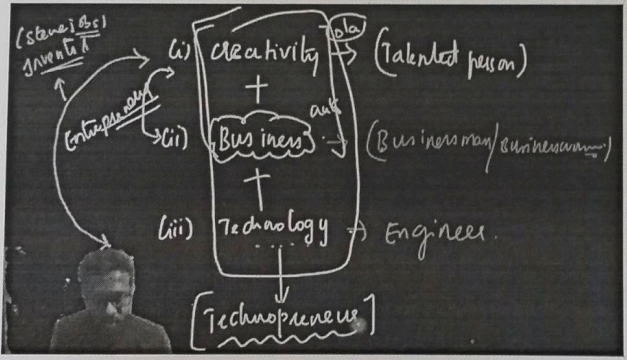 (Steve jobs)
Invent
Entrepreneur
(i) Creativity → (Talented person)
ola
+
auto
(ii) Business → (Businessman/Businesswoman)
+
(iii) Technology → Engineer.
[Technopreneur]